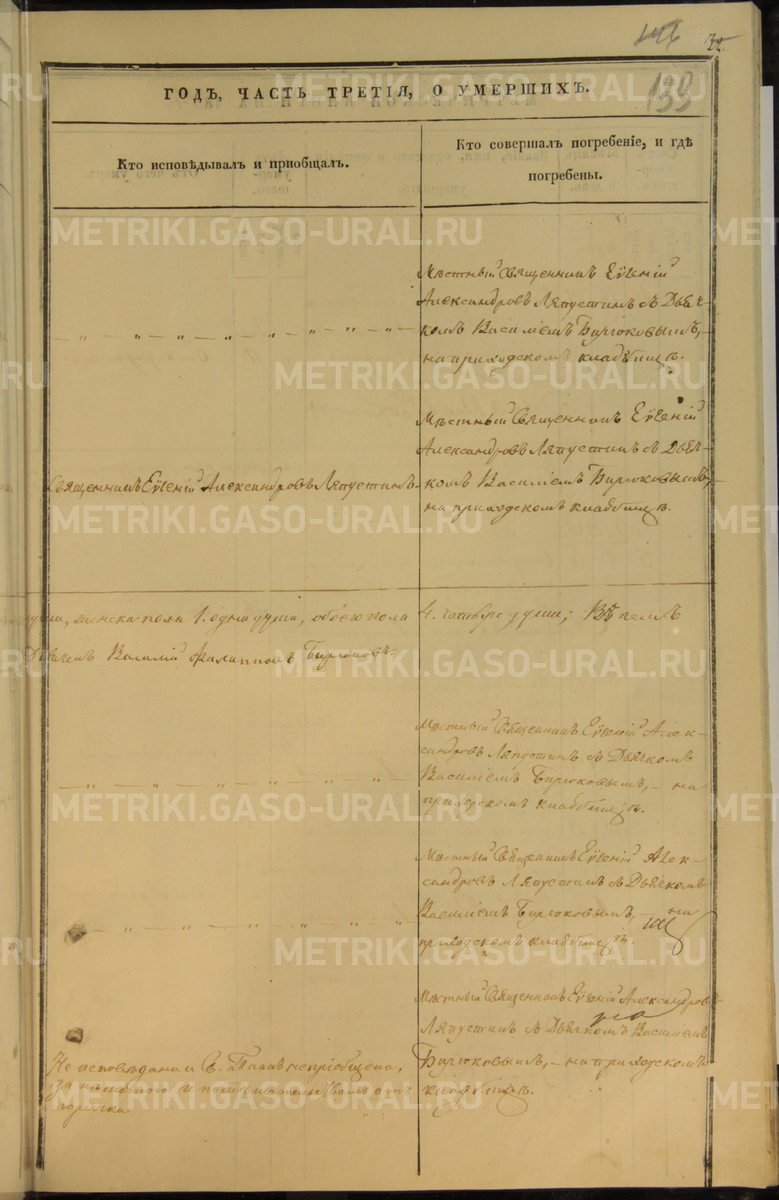 22.
139
ГОДЪ, ЧАСТЬ ТРЕТІЯ, О УМЕРШИХЪ.
Кто исповѣдывалъ и приобщалъ.
Кто совершалъ погребеніе, и гдѣ
погребены.
Мѣстный Священникъ Евгеній
Александровъ Ляпустинъ съ Дьяч-
комъ Василіемъ Бирюковымъ, –
на приходскомъ кладбищѣ.
Мѣстный Священникъ Евгеній
Александровъ Ляпустинъ съ Дьяч-
комъ Василіемъ Бирюковымъ, –
на приходскомъ кладбищѣ.
Священникъ Евгеній Александровъ Ляпустинъ
женска пола 1. одна душа, обоего пола
4. четыре души;
Василій Филипповъ Бирюковъ.
Мѣстный Священникъ Евгеній Алек-
сандровъ Ляпустинъ съ Дьячкомъ
Василіемъ Бирюковымъ, – на
приходскомъ кладбищѣ.
Мѣстный Священникъ Евгеній Алек-
сандровъ Ляпустинъ съ Дьячкомъ
Василіемъ Бирюковымъ, – на
приходскомъ кладбищѣ.
Мѣстный Священникъ Евгеній Александровъ
Ляпустинъ съ Дьячкомъ Василіемъ
Бирюковымъ, – на приходскомъ
кладбищѣ.
Не исповѣдана и Св. Таинъ не пріобщена,
за
горячки.
METRIKI.GASO-URAL.RU